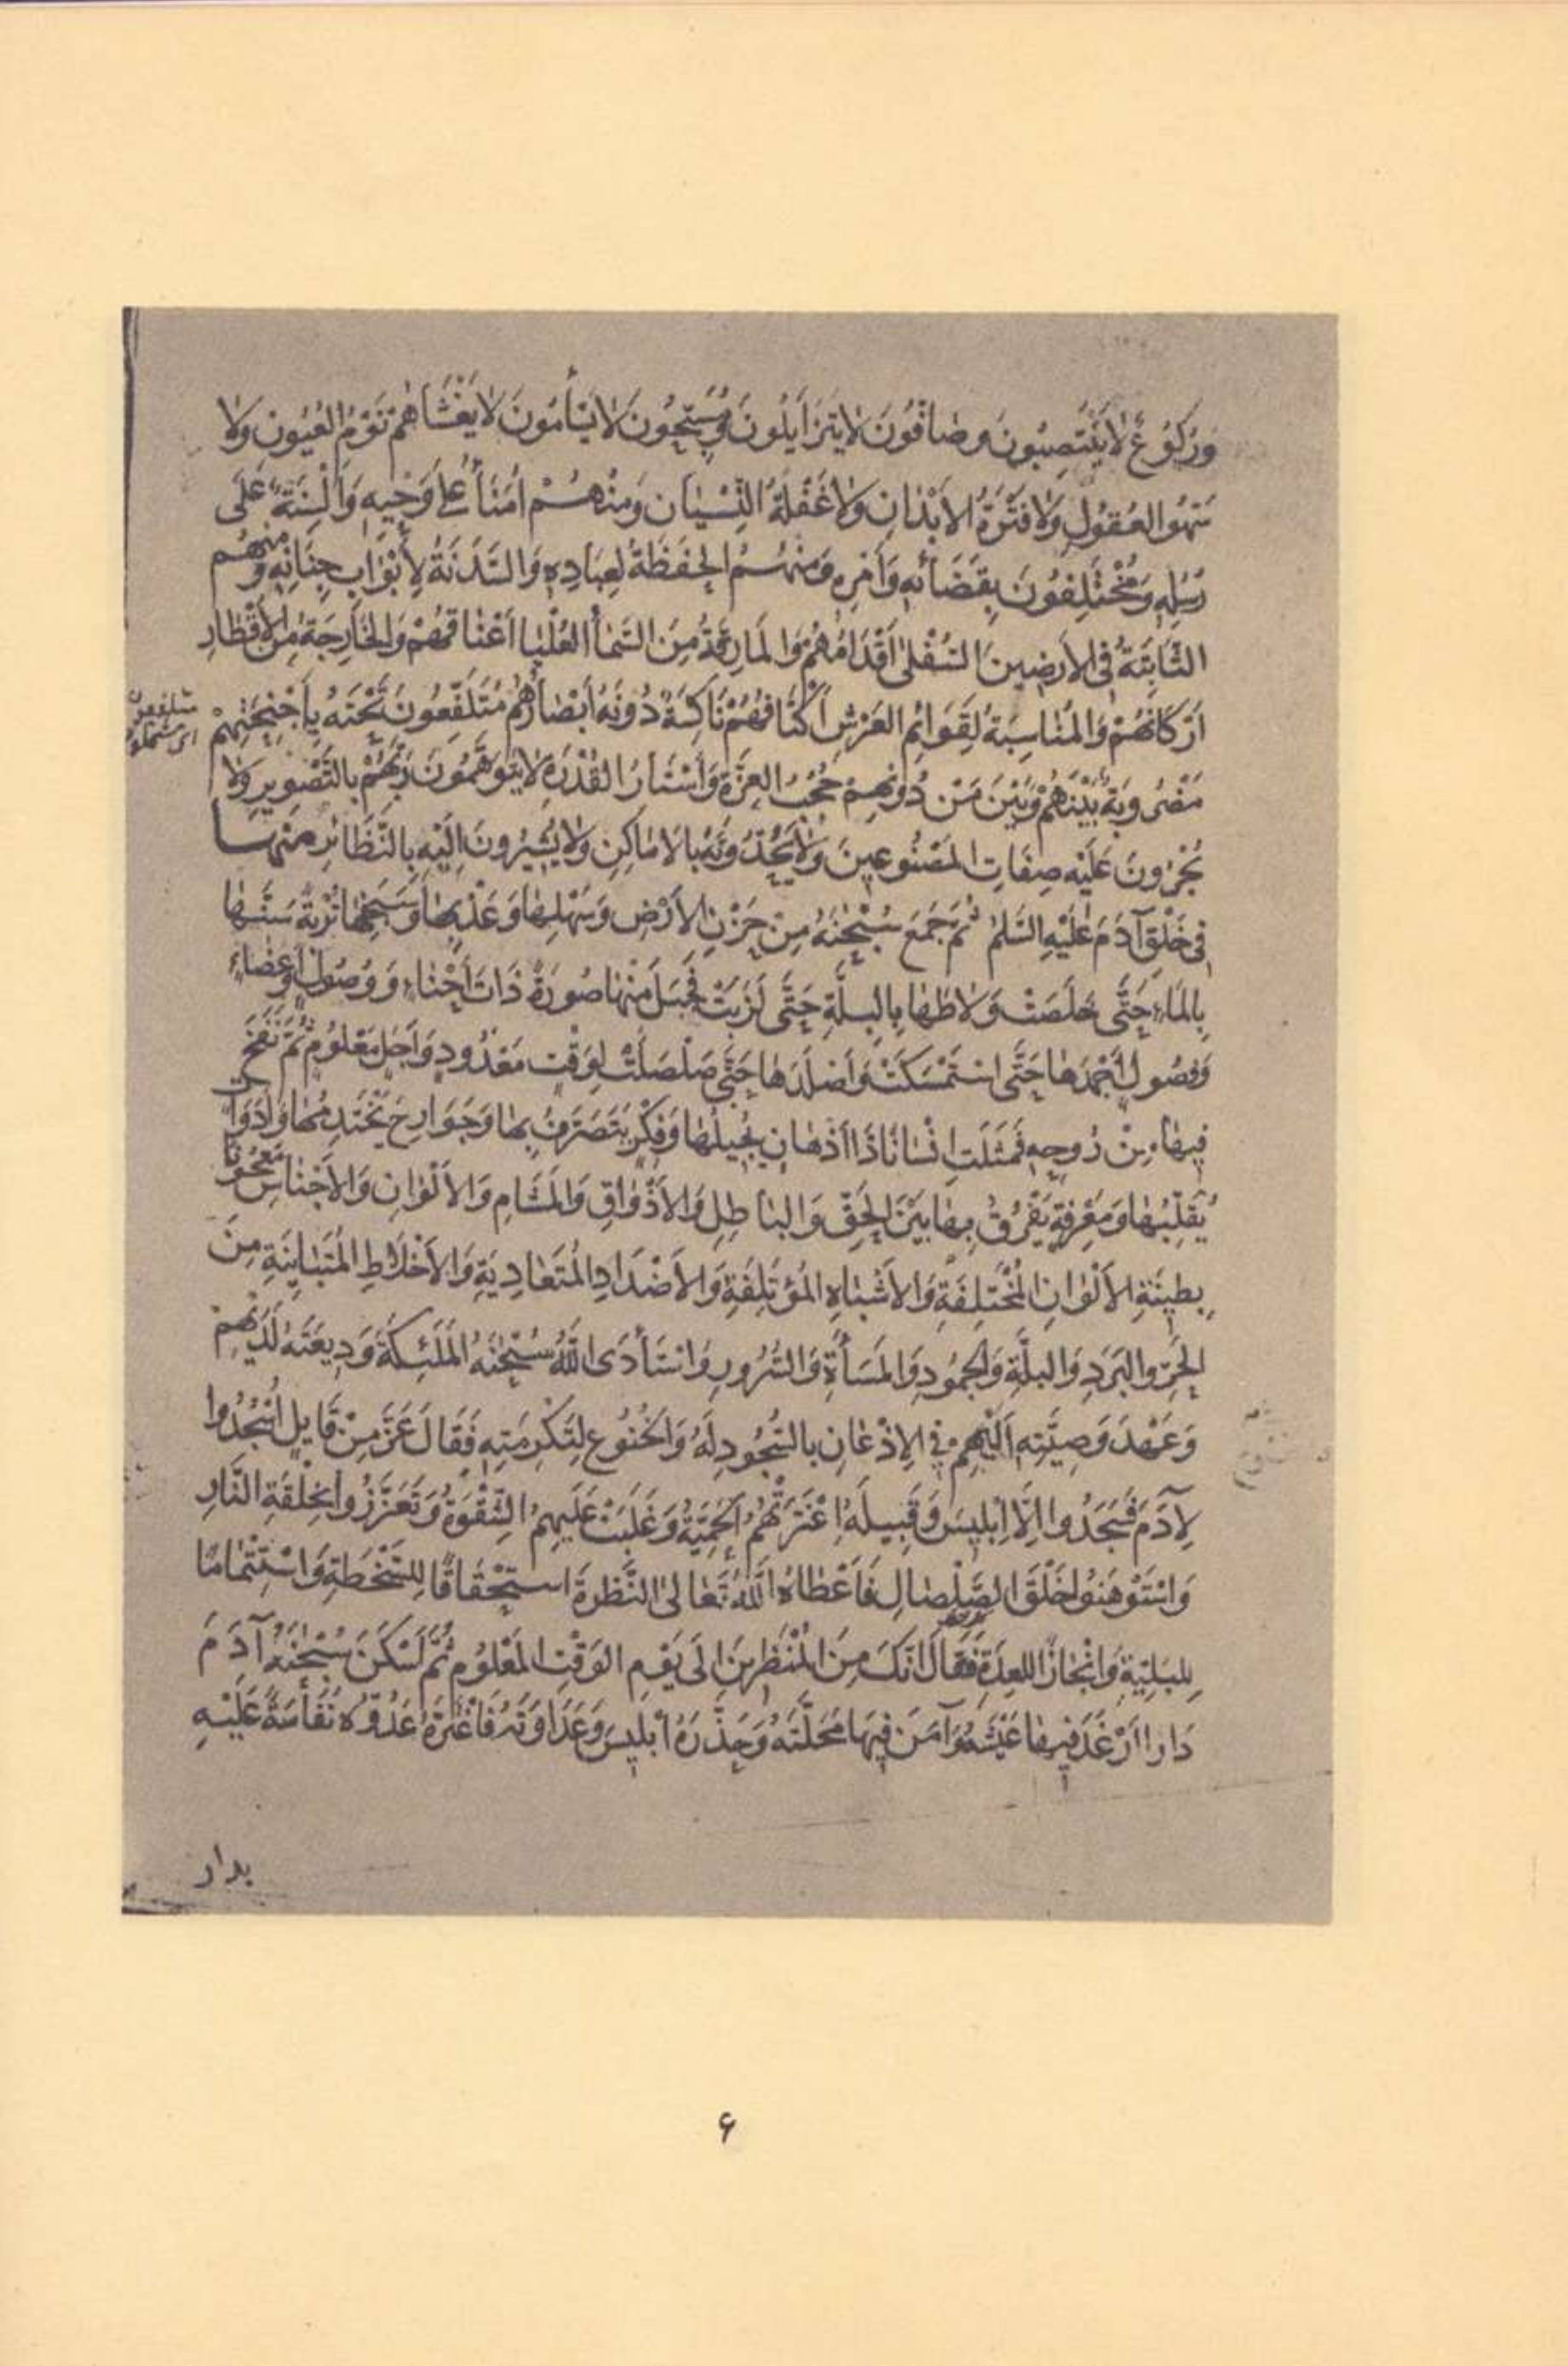 وَرُكُوعٌ لَا يَنْتَصِبُونَ وَصَافُّونَ لَا يَتَزَايَلُونَ وَمُسَبِّحُونَ لَا يَسْأَمُونَ لَا يَغْشَاهُمْ نَوْمُ العُيُونِ وَلَا
سَهْوُ العُقُولِ وَلَا فَتْرَةُ الأَبْدَانِ وَلَا غَفْلَةُ النِّسْيَانِ وَمِنْهُمْ أُمَنَاءُ عَلَى وَحْيِهِ وَأَلْسِنَةٌ عَلَى
رُسُلِهِ وَمُخْتَلِفُونَ بِقَضَائِهِ وَأَمْرِهِ وَمِنْهُمُ الحَفَظَةُ لِعِبَادِهِ وَالسَّدَنَةُ لِأَبْوَابِ جِنَانِهِ وَمِنْهُم
الثَّابِتَةُ فِي الأَرَضِينَ السُّفْلَى أَقْدَامُهُمْ وَالمَارِقَةُ مِنَ السَّمَاءِ العُلْيَا أَعْنَاقُهُمْ وَالخَارِجَةُ مِنَ الأَقْطَارِ
أَرْكَانُهُمْ وَالمُنَاسِبَةُ لِقَوَائِمِ العَرْشِ أَكْتَافُهُمْ نَاكِسَةٌ دُونَهُ أَبْصَارُهُمْ مُتَلَفِّعُونَ تَحْتَهُ بِأَجْنِحَتِهِمْ
متلفعون
اى مشتملون
مَضْرُوبَةٌ بَيْنَهُمْ وَبَيْنَ مَنْ دُونَهُمْ حُجُبُ العِزَّةِ وَأَسْتَارُ القُدْرَةِ لَا يَتَوَهَّمُونَ رَبَّهُمْ بِالتَّصْوِيرِ وَلَا
يُجْرُونَ عَلَيْهِ صِفَاتِ المَصْنُوعِينَ وَلَا يَحُدُّونَهُ بِالأَمَاكِنِ وَلَا يُشِيرُونَ إِلَيْهِ بِالنَّظَائِرِ مِنْهَا
فِي خَلْقِ آدَمَ عَلَيْهِ السَّلَمُ ثُمَّ جَمَعَ سُبْحَنَهُ مِنْ حَزْنِ الأَرْضِ وَسَهْلِهَا وَعَذْبِهَا وَسَبَخِهَا تُرْبَةً سَنَّهَا
بِالمَاءِ حَتَّى خَلَصَتْ وَلَاطَهَا بِالبِلَّةِ حَتَّى لَزَبَتْ فَجَبَلَ مِنْهَا صُورَةً ذَاتَ أَحْنَاءٍ وَوُصُولٍ وَأَعْضَاءٍ
وَفُصُولٍ أَجْمَدَهَا حَتَّى اسْتَمْسَكَتْ وَأَصْلَدَهَا حَتَّى صَلْصَلَتْ لِوَقْتٍ مَعْدُودٍ وَأَجَلٍ مَعْلُومٍ ثُمَّ نَفَخَ
فِيهَا مِنْ رُوحِهِ فَمَثَلَتْ إِنْسَانًا ذَا أَذْهَانٍ يُجِيلُهَا وَفِكَرٍ يَتَصَرَّفُ بِهَا وَجَوَارِحَ يَخْتَدِمُهَا وَأَدَوَاتٍ
يُقَلِّبُهَا وَمَعْرِفَةٍ يَفْرُقُ بِهَا بَيْنَ الحَقِّ وَالبَاطِلِ وَالأَذْوَاقِ وَالمَشَامِ وَالأَلْوَانِ وَالأَجْنَاسِ مَعْجُونًا
بِطِينَةِ الأَلْوَانِ المُخْتَلِفَةِ وَالأَشْبَاهِ المُؤْتَلِفَةِ وَالأَضْدَادِ المُتَعَادِيَةِ وَالأَخْلَاطِ المُتَبَايِنَةِ مِنَ
الحَرِّ وَالبَرْدِ وَالبِلَّةِ وَالجُمُودِ وَالمَسَاءَةِ وَالسُّرُورِ وَاسْتَأْدَى اللهُ سُبْحَنَهُ المَلَئِكَةَ وَدِيعَتَهُ لَدَيْهِمْ
وَعَهْدَ وَصِيَّتِهِ إِلَيْهِمْ فِي الإِذْعَانِ بِالسُّجُودِ لَهُ وَالخُنُوعِ لِتَكْرِمَتِهِ فَقَالَ عَزَّ مِنْ قَايِلٍ اسْجُدُوا
لِآدَمَ فَسَجَدُوا إِلَّا إِبْلِيسَ وَقَبِيلَهُ اعْتَرَتْهُمُ الحَمِيَّةُ وَغَلَبَتْ عَلَيْهِمُ الشِّقْوَةُ وَتَعَزَّزُوا بِخِلْقَةِ النَّارِ
وَاسْتَوْهَنُوا خَلْقَ الصَّلْصَالِ فَأَعْطَاهُ اللهُ تَعَالَى النَّظِرَةَ اسْتِحْقَاقًا لِلسَّخْطَةِ وَاسْتِتْمَامًا
لِلبَلِيَّةِ وَإِنْجَازًا لِلعِدَةِ فَقَالَ إِنَّكَ مِنَ المُنْظَرِينَ إِلَى يَوْمِ الوَقْتِ المَعْلُومِ ثُمَّ أَسْكَنَ سُبْحَنَهُ آدَمَ
دَارًا أَرْغَدَ فِيهَا عَيْشَهُ وَآمَنَ فِيهَا مَحَلَّتَهُ وَحَذَّرَهُ إِبْلِيسَ وَعَدَاوَتَهُ فَاغْتَرَّهُ عَدُوُّهُ نَفَاسَةً عَلَيْهِ
بدار
۶